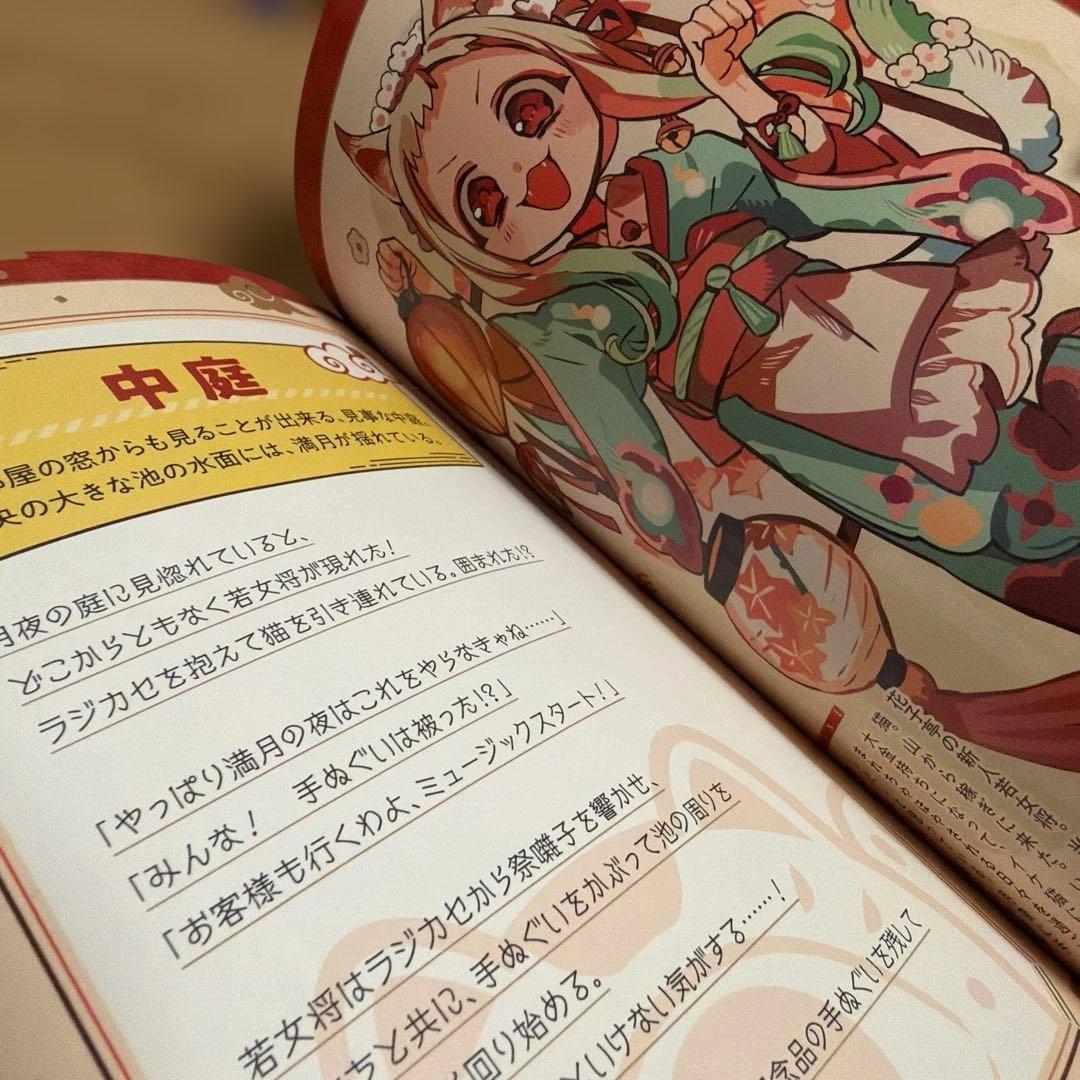 中庭
屋の窓からも見ることが出来る、見事な中庭。
央の大きな池の水面には、満月が揺れている。
月夜の庭に見惚れていると、
どこからともなく若女将が現れた！
ラジカセを抱えて猫を引き連れている。囲まれた!?
「やっぱり満月の夜はこれをやらなきゃね……」
「みんな！　手ぬぐいは被った!?」
「お客様も行くわよ、ミュージックスタート！」
若女将はラジカセから祭囃子を響かせ、
ちと共に、手ぬぐいをかぶって池の周りを
回り始める。
といけない気がする……！
念品の手ぬぐいを残して
花子亭の新人若女将。
猫。山から稼ぎに来た。
大金持ちになって、イケ猫に